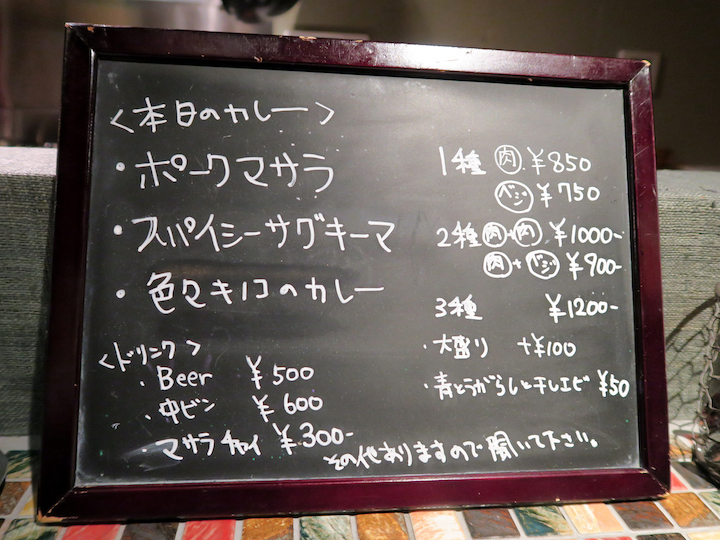 ＜本日のカレー＞
・ポークマサラ
・スパイシーサグキーマ
・色々キノコのカレー
1種 肉 ¥850
ベジ ¥750
2種 肉+肉 ¥1000-
肉+ベジ ¥900-
3種 ¥1200-
・大盛り +¥100
・青とうがらしと干しエビ ¥50
＜ドリンク＞
・Beer ¥500
・中ビン ¥600
・マサラチャイ ¥300-
その他ありますので聞いて下さい。